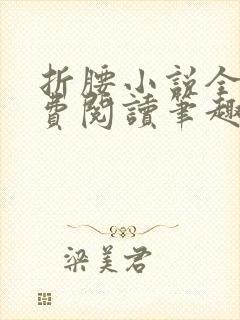 折腰小说全
費閱讀筆趣
梁美君